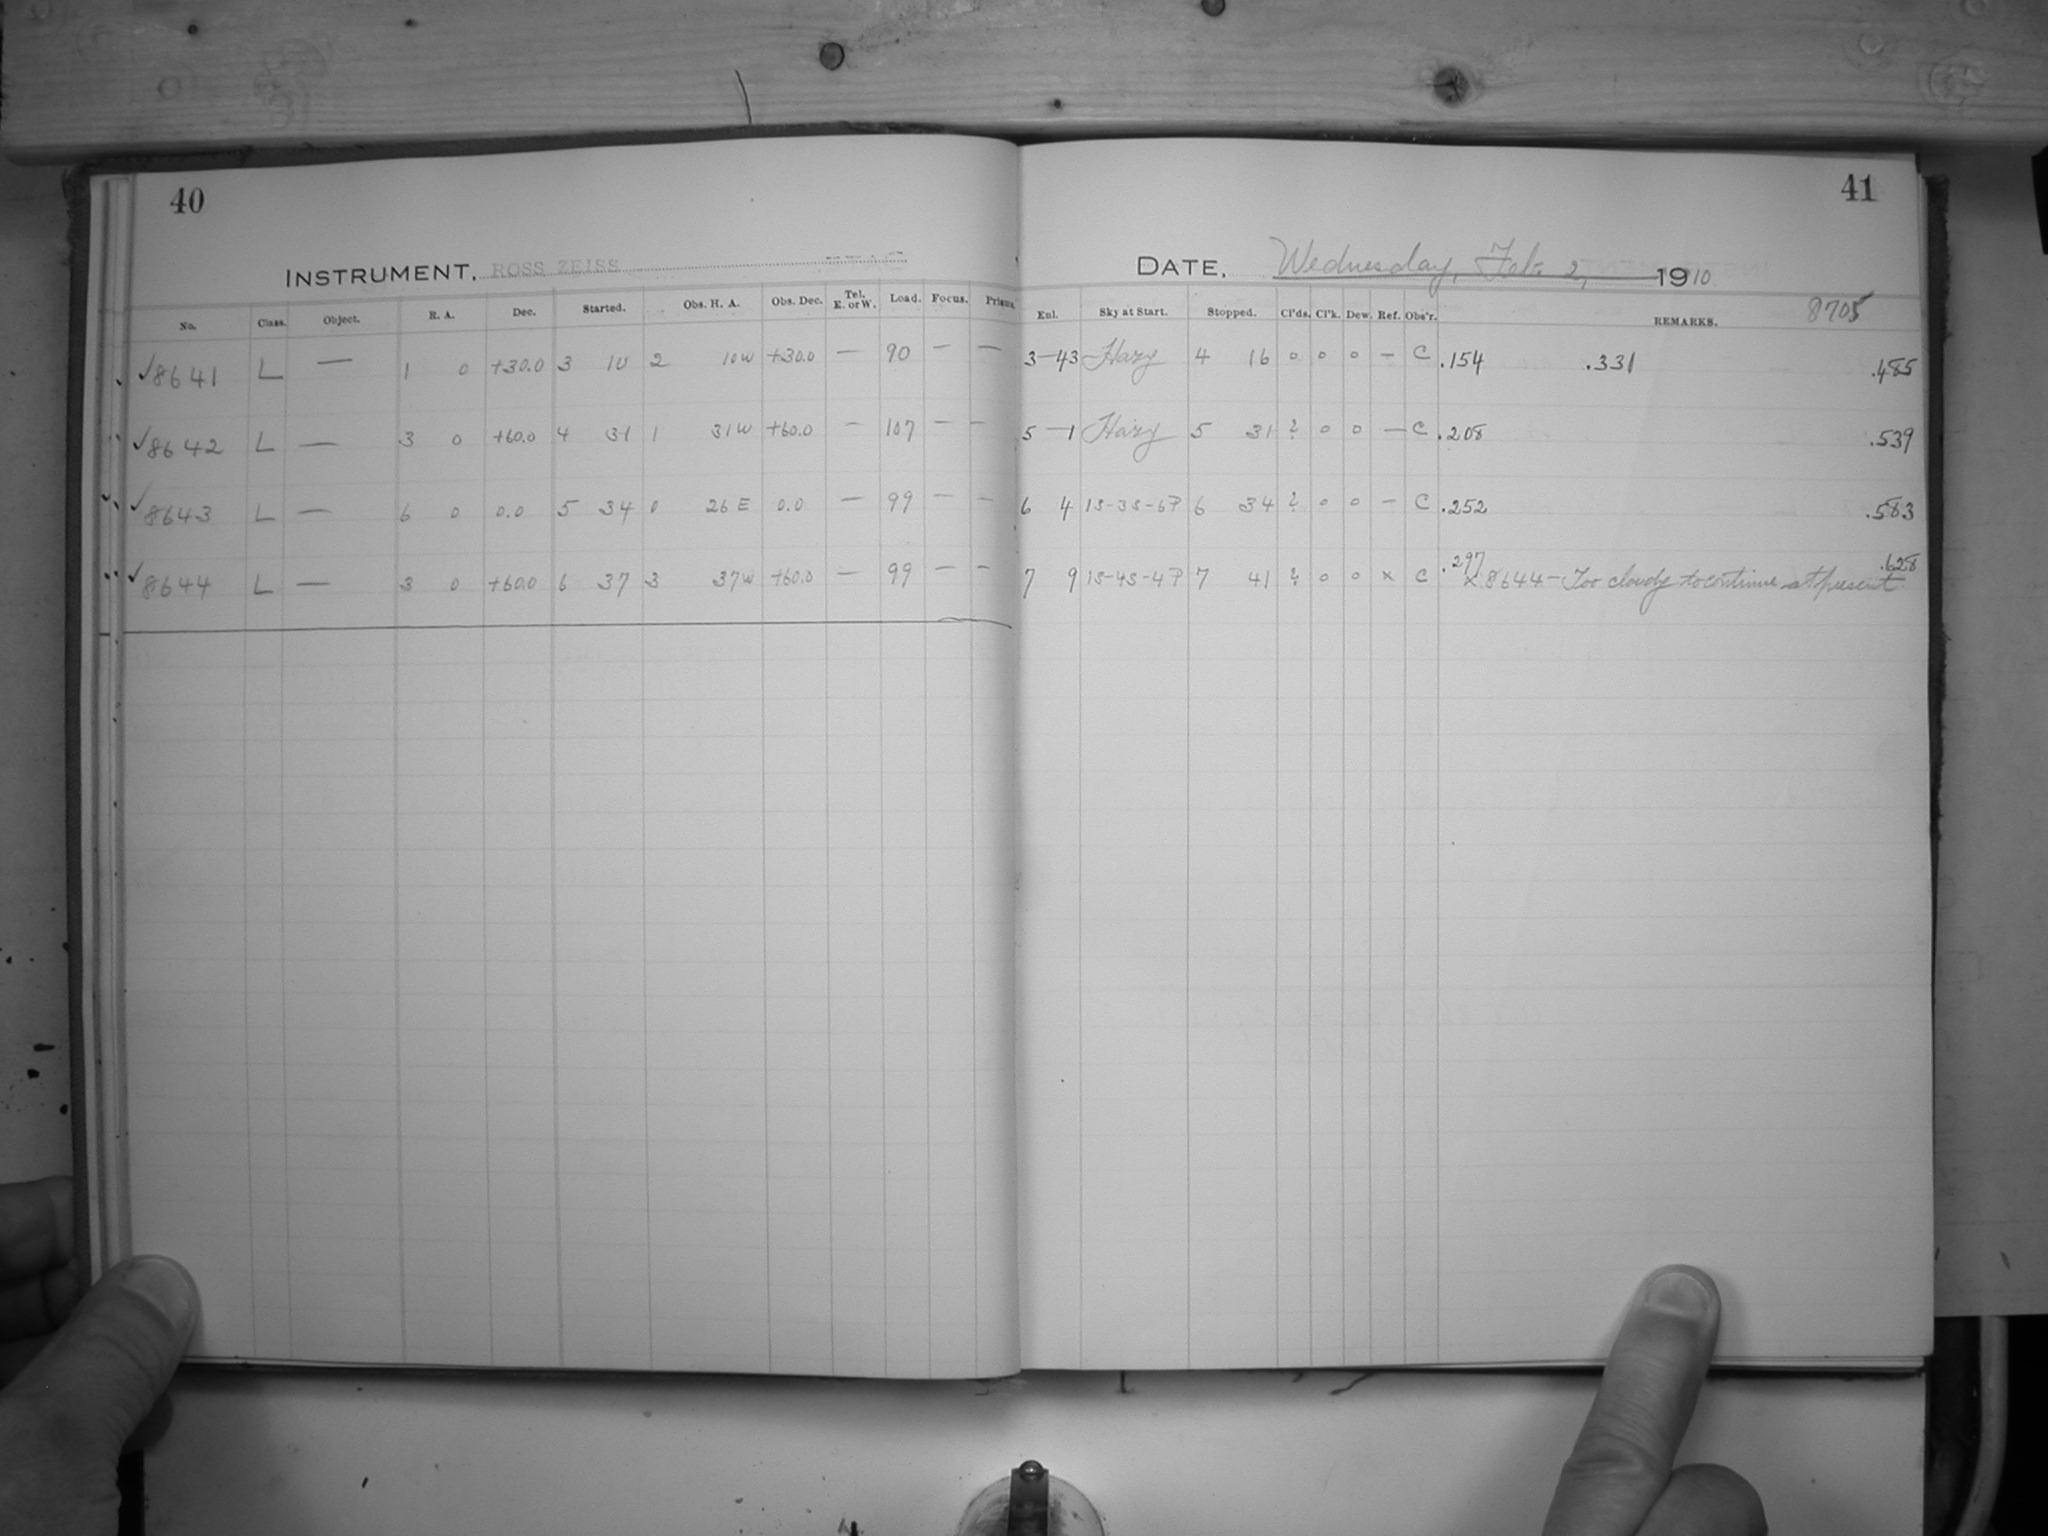 40
INSTRUMENT, ROSS ZEISS
No. Class. Object. R. A. Dec. Started. Obs. H. A. Obs. Dec. Tel. E. or W. Load. Focus. Prisms.
✓8641 L — 1 0 +30.0 3 10 2 10 W +30.0 — 90 — —
✓8642 L — 3 0 +60.0 4 31 1 31 W +60.0 — 107 — —
✓8643 L — 6 0 0.0 5 34 0 26 E 0.0 — 99 — —
✓8644 L — 3 0 +60.0 6 37 3 37 W +60.0 — 99 — —
41
DATE, Wednesday, Feb. 2, 1910
8705
Enl. Sky at Start. Stopped. Cl'ds. Cl'k. Dew. Ref. Obs'r. REMARKS.
3—43 Hazy 4 16 0 0 0 — C .154 .331 .485
5—1 Hazy 5 31 ? 0 0 — C .208 .539
6 4 1S-3S-6P 6 34 ? 0 0 — C .252 .583
7 9 1S-4S-4P 7 41 ? 0 0 x C .297 .628
x 8644 — Too cloudy to continue at present